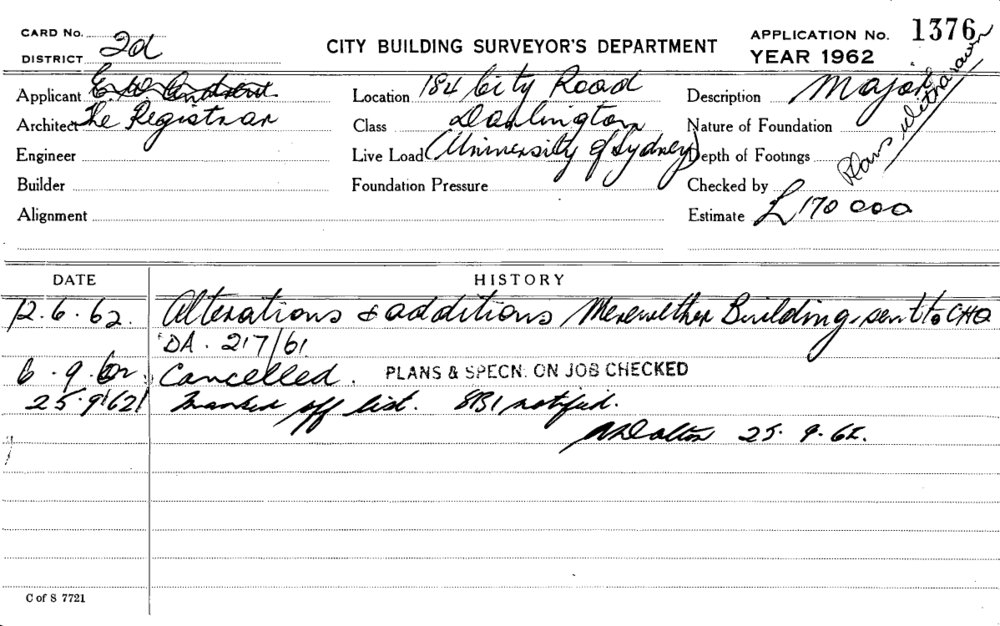 CARD No.
DISTRICT 2d
CITY BUILDING SURVEYOR'S DEPARTMENT
APPLICATION No. 1376
YEAR 1962
Applicant
Architect The Registrar
Engineer
Builder
Alignment
Location 184 City Road
Class Darlington
Live Load (University of Sydney)
Foundation Pressure
Description Major
Nature of Foundation
Depth of Footings
Checked by
Estimate £170 000
Plans withdrawn
DATE HISTORY
12.6.62. Alterations & additions Merewether Building. sent to CHO
DA. 217/61
6.9.62 Cancelled. PLANS & SPECN. ON JOB CHECKED
25.9.62 Marked off list. SBI notified.
Dalton 25.9.62.
C of S 7721